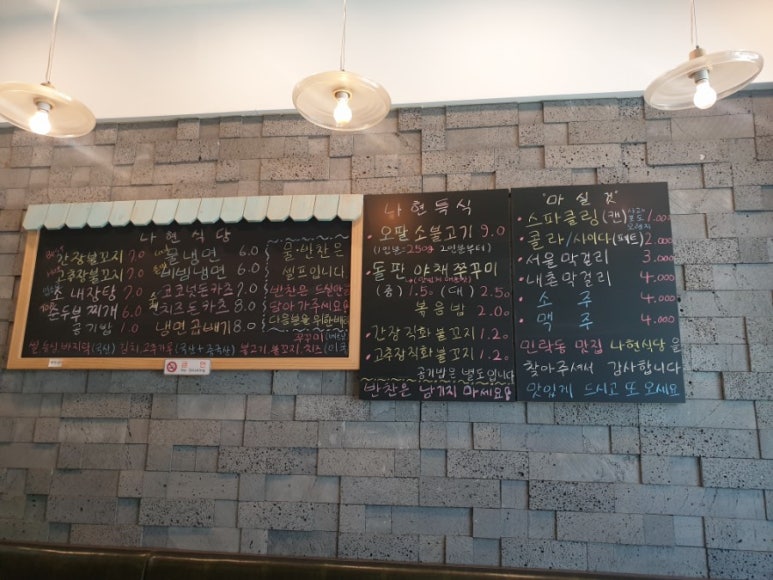 나현식당
간장불고지 7.0
고추장불고지 7.0
초내장탕 7.0
순두부찌개 6.0
공기밥 1.0
물냉면 6.0
비빔냉면 6.0
코코넛돈카츠 7.0
치즈돈카츠 8.0
냉면곱빼기 8.0
물·반찬은
셀프입니다
반찬은 드실만큼
담아가주세요
다음분을 위하여
쌀, 바지락(국산) 김치, 고추가루(국산+중국산) 불고기, 불꼬지, 치즈
No Smoking
나현특식
• 오팔 소불고기 9.0
(1인분-250g 2인분부터)
• 돌판 야채 쭈꾸미
(중) 1.5 (대) 2.5
볶음밥 2.0
• 간장직화불꼬지 1.2
• 고추장직화불꼬지 1.2
공기밥은 별도입니다
반찬은 남기지 마세요
"마실것"
• 스파클링(캔) 1.000
• 콜라/사이다(페트) 2.000
• 서울막걸리 3.000
• 내촌막걸리 4.000
• 소주 4.000
• 맥주 4.000
민락동 맛집 나현식당을
찾아주셔서 감사합니다
맛있게 드시고 또 오세요